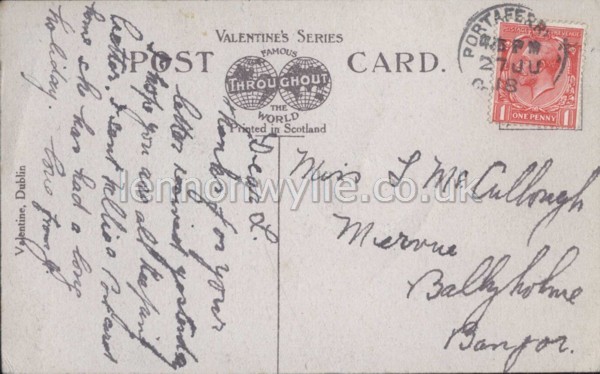 VALENTINE'S SERIES
POST CARD.
FAMOUS
THROUGHOUT
THE
WORLD
Printed in Scotland
PORTAFERRY
PM
27 JU
ONE PENNY
1 1
Valentine, Dublin
Dear L.
Thanks for your
letter received yesterday
I hope you are all keeping
better.
time she has had a long
holiday. Love from
Miss L McCullough
Mervue
Ballyholme
Bangor.
lennonwylie.co.uk